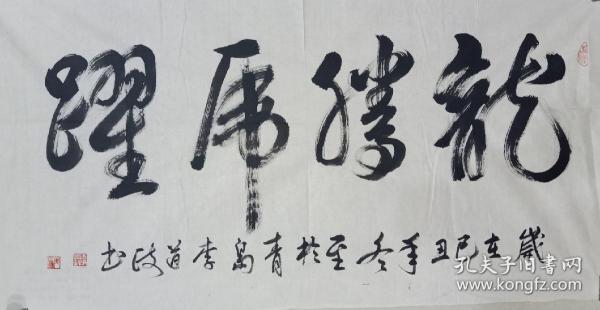 龍腾虎躍
歲在己丑年冬至於青島李道政书
孔夫子旧书网
www.kongfz.com